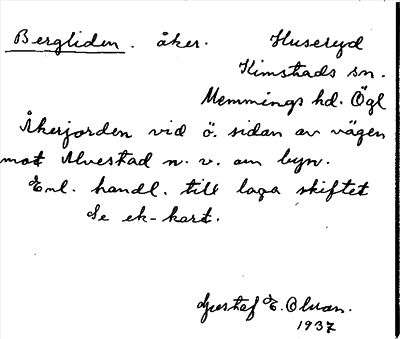 Bergliden. åker. Huseryd
Kimstads sn.
Memmings hd. Ögl
Åkerjorden vid ö. sidan av vägen
mot Alvestad n. v. om byn.
Enl. handl. till laga skiftet
Se ek-kart.
Gustaf E. Olsson.
1937